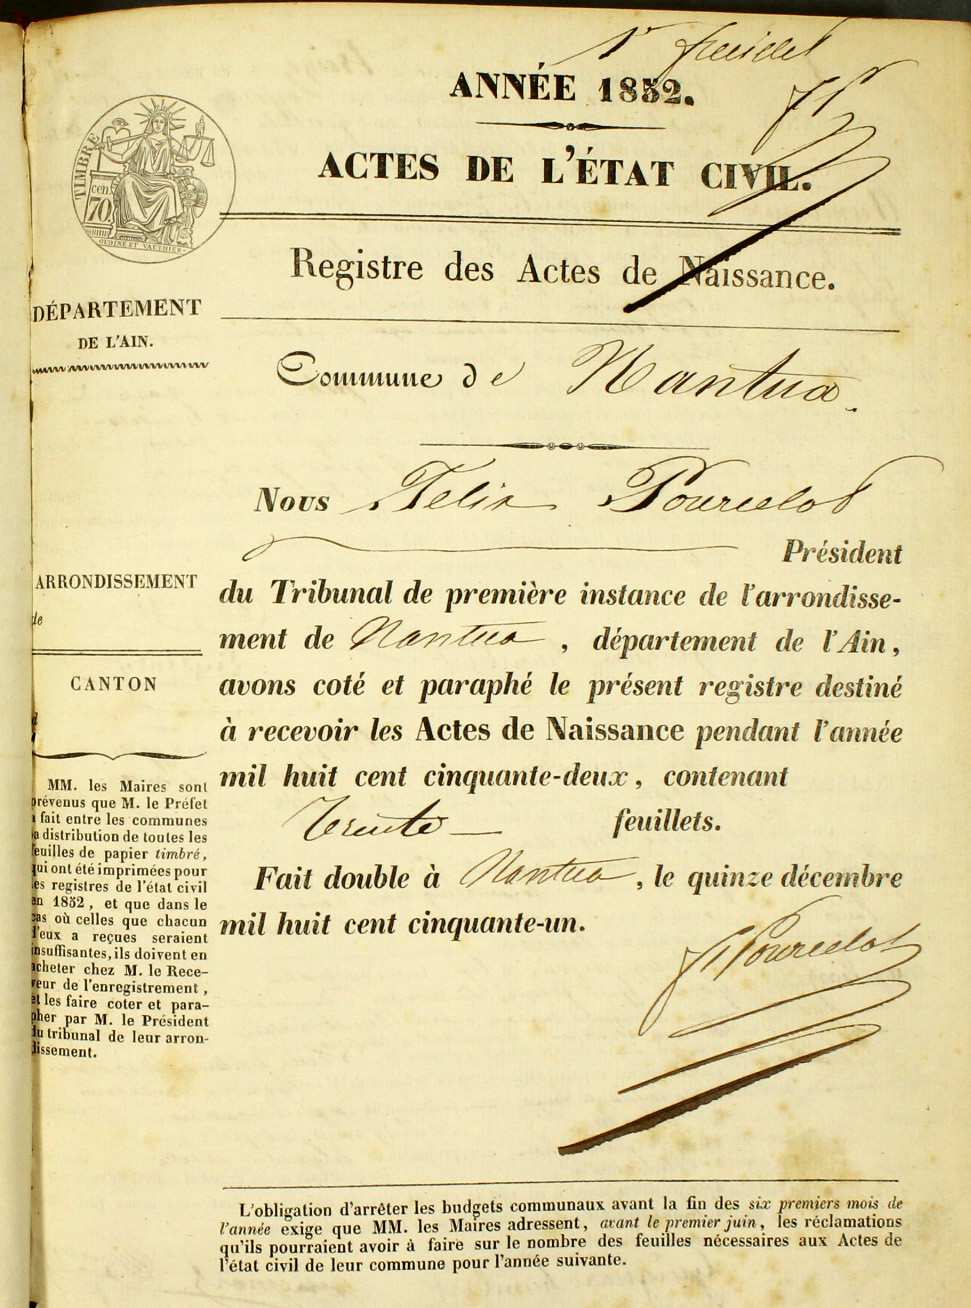 1er feuillet
ANNÉE 1852.
ACTES DE L'ÉTAT CIVIL.
TIMBRE
cen
70
OUDINÉ ET VAUTHIER
Registre des Actes de Naissance.
DÉPARTEMENT
DE L'AIN.
Commune de Nantua
Nous Félix Pourcelot
Président
du Tribunal de première instance de l'arrondisse-
ment de Nantua, département de l'Ain,
avons coté et paraphé le présent registre destiné
à recevoir les Actes de Naissance pendant l'année
mil huit cent cinquante-deux, contenant
Trente feuillets.
Fait double à Nantua, le quinze décembre
mil huit cent cinquante-un.
F Pourcelot
ARRONDISSEMENT
de
CANTON
MM. les Maires sont
prévenus que M. le Préfet
a fait entre les communes
la distribution de toutes les
feuilles de papier timbré,
qui ont été imprimées pour
les registres de l'état civil
en 1852, et que dans le
cas où celles que chacun
d'eux a reçues seraient
insuffisantes, ils doivent en
acheter chez M. le Rece-
veur de l'enregistrement,
et les faire coter et para-
pher par M. le Président
du tribunal de leur arron-
dissement.
L'obligation d'arrêter les budgets communaux avant la fin des six premiers mois de
l'année exige que MM. les Maires adressent, avant le premier juin, les réclamations
qu'ils pourraient avoir à faire sur le nombre des feuilles nécessaires aux Actes de
l'état civil de leur commune pour l'année suivante.